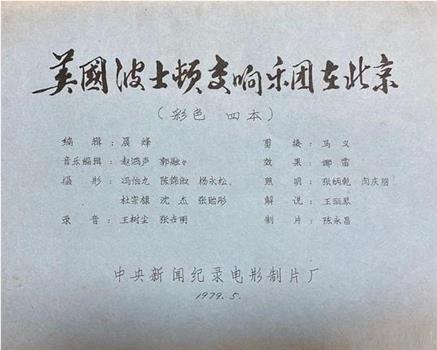 美國波士顿交响乐团在北京
（彩色 四本）
编 辑：晨 烽 剪 接：马 义
音乐编辑：赵鸿声 郭融融 效 果：娜 雷
摄 影：冯怡九 陈锦俶 杨永松、 照 明：张炳乾 向庆丽
杜宗雄 沈 杰 张贻彤 解 说：王 琴
录 音：王树尘 张古明 制 片：陈永昌
中央新闻纪录电影制片厂
1979.5.